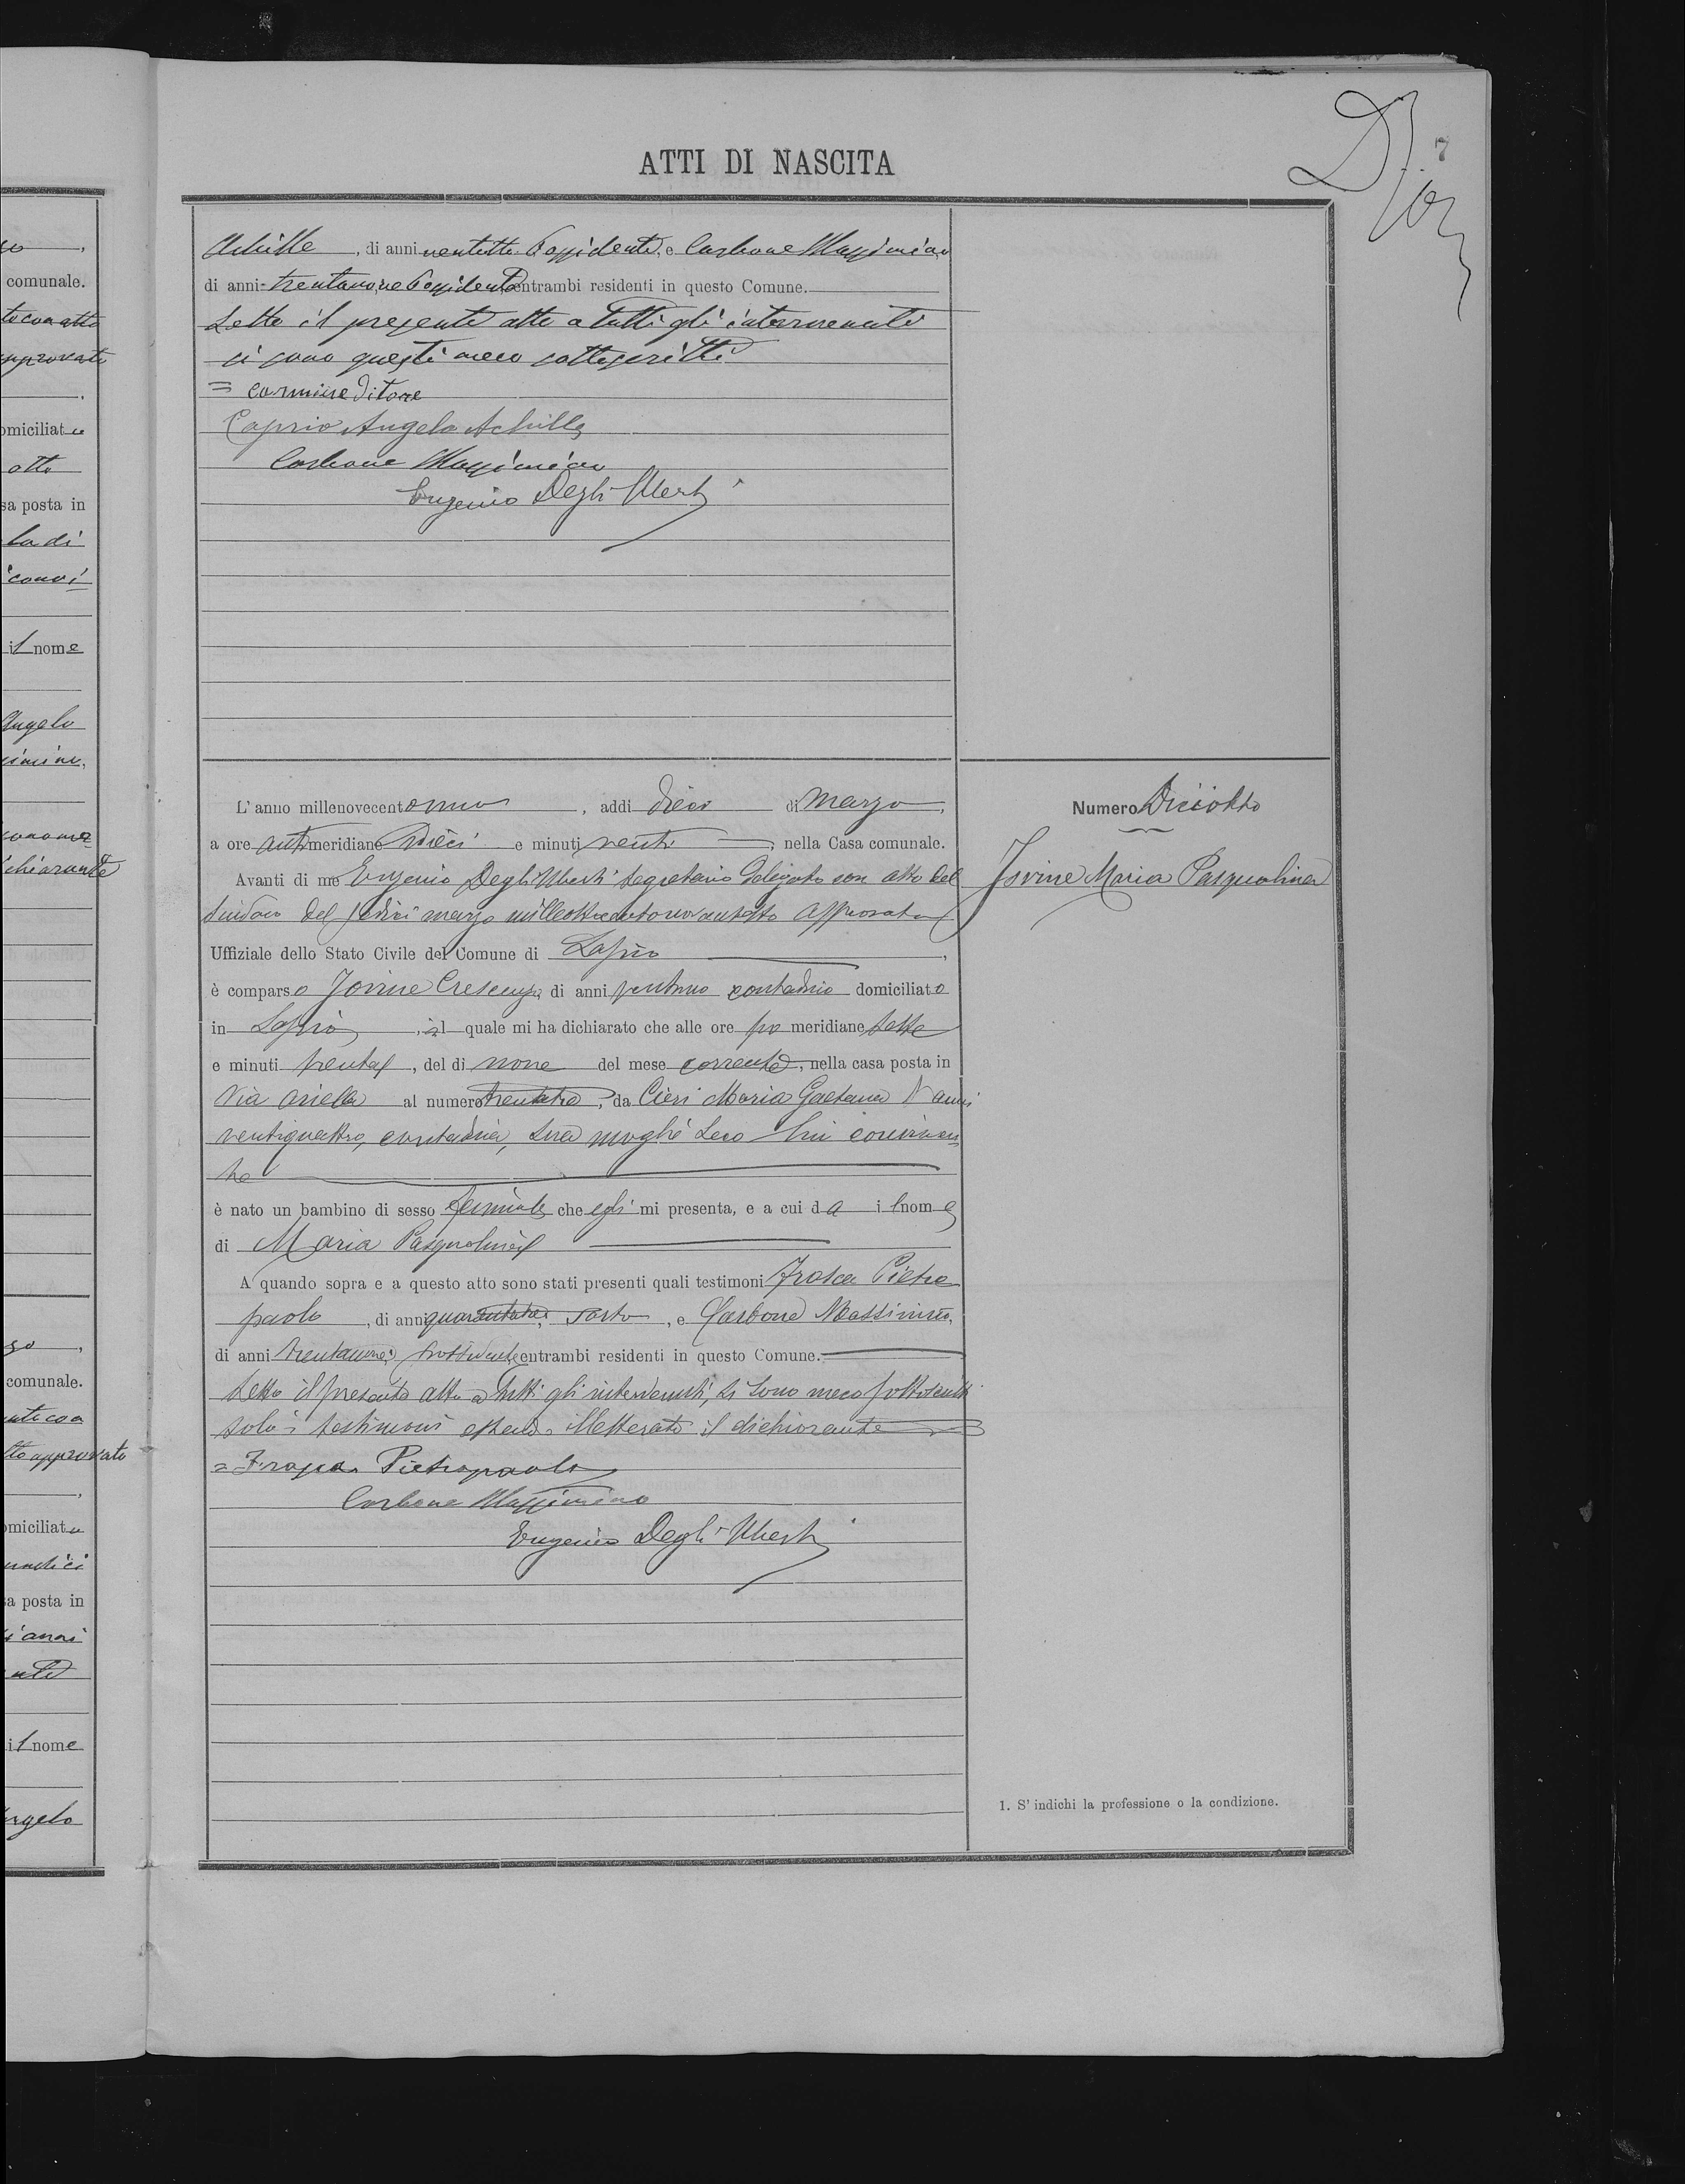 ATTI DI NASCITA
7
Achille, di anni ventotto Possidente, e Carbone Massimino
di anni trentanove Possidente entrambi residenti in questo Comune.
Letto il presente atto a tutti gli intervenuti
si sono questi meco sottoscritti
= Carmine Ditore
Caprio Angelo Achille
Carbone Massimino
Eugenio Degli Uberti
L'anno millenovecentonno, addi dieci di Marzo,
a ore antimeridiane Dieci e minuti venti, nella Casa comunale.
Avanti di me Eugenio Degli Uberti Segretario Delegato con atto del
Sindaco del sedici marzo milleottocentonovantotto approvato
Uffiziale dello Stato Civile del Comune di Lapio,
è comparso Jovine Crescenzo di anni ventuno contadino domiciliato
in Lapio, il quale mi ha dichiarato che alle ore po meridiane sette
e minuti trenta, del di nove del mese corrente, nella casa posta in
Via Ariella al numero trentatre, da Cieri Maria Gaetana d'anni
ventiquattro, contadina, sua moglie seco lui conviven
te
è nato un bambino di sesso feminile che egli mi presenta, e a cui da il nome
di Maria Pasqualina
A quando sopra e a questo atto sono stati presenti quali testimoni Frasca Pietro
paolo, di anni quarantatre, sarto, e Carbone Massimino,
di anni trentanove, possidente entrambi residenti in questo Comune.
Letto il presente atto a tutti gli intervenuti, si sono meco sottoscritti
solo i testimoni essendo illetterato il dichiarante
= Frasca Pietropaolo
Carbone Massimino
Eugenio Degli Uberti
Numero Diciotto
Jovine Maria Pasqualina
1. S'indichi la professione o la condizione.
comunale.
to con atto
approvato
omiciliata
otto
sa posta in
la di
convi
il nome
Angelo
simino,
ichiarante
comunale.
tto approvato
omiciliata
undici
a posta in
i anni
il nome
Angelo